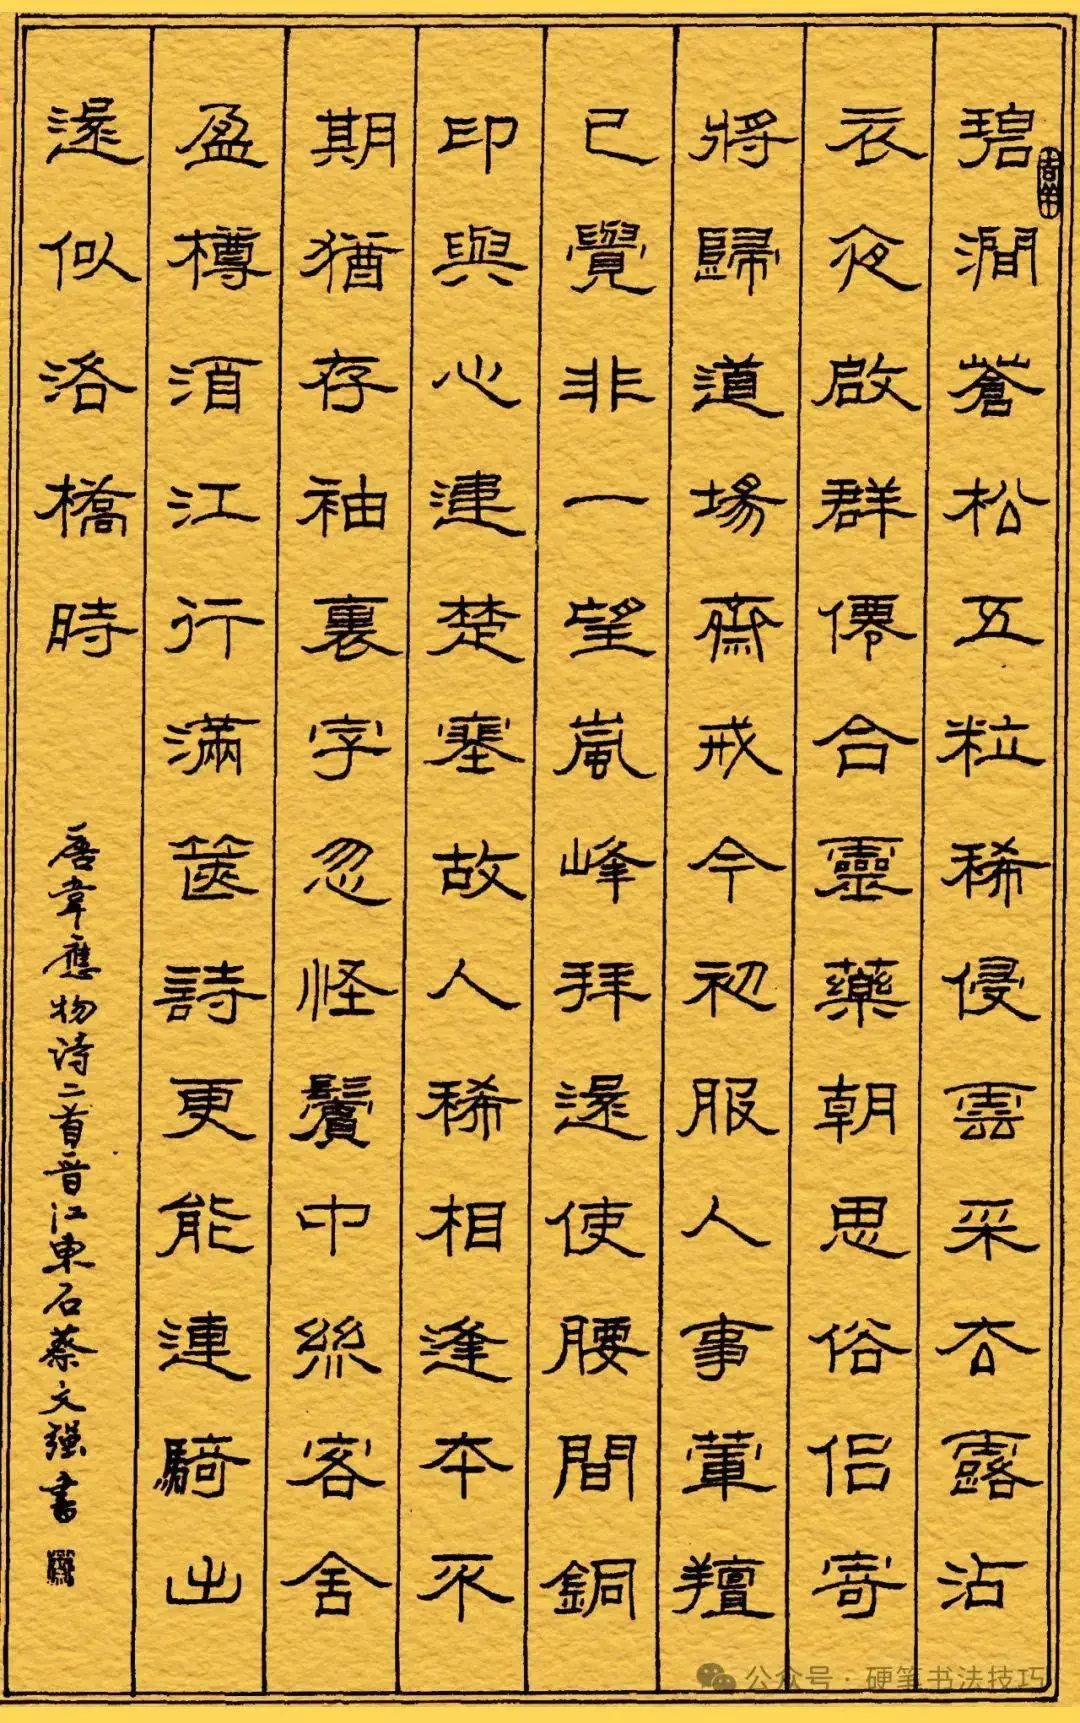 碧澗蒼松五粒稀侵雲采去露沾
衣夜啟群僊合靈藥朝思俗侶寄
將歸道場齋戒今初服人事葷羶
已覺非一望嵐峰拜還使腰間銅
印與心建楚塞故人稀相逢本不
期猶存袖裏字忽怪鬢中絲客舍
盈樽酒江行滿篋詩更能連騎出
還似洛橋時
唐韋應物诗二首晋江東石蔡文强書
公众号·硬笔书法技巧